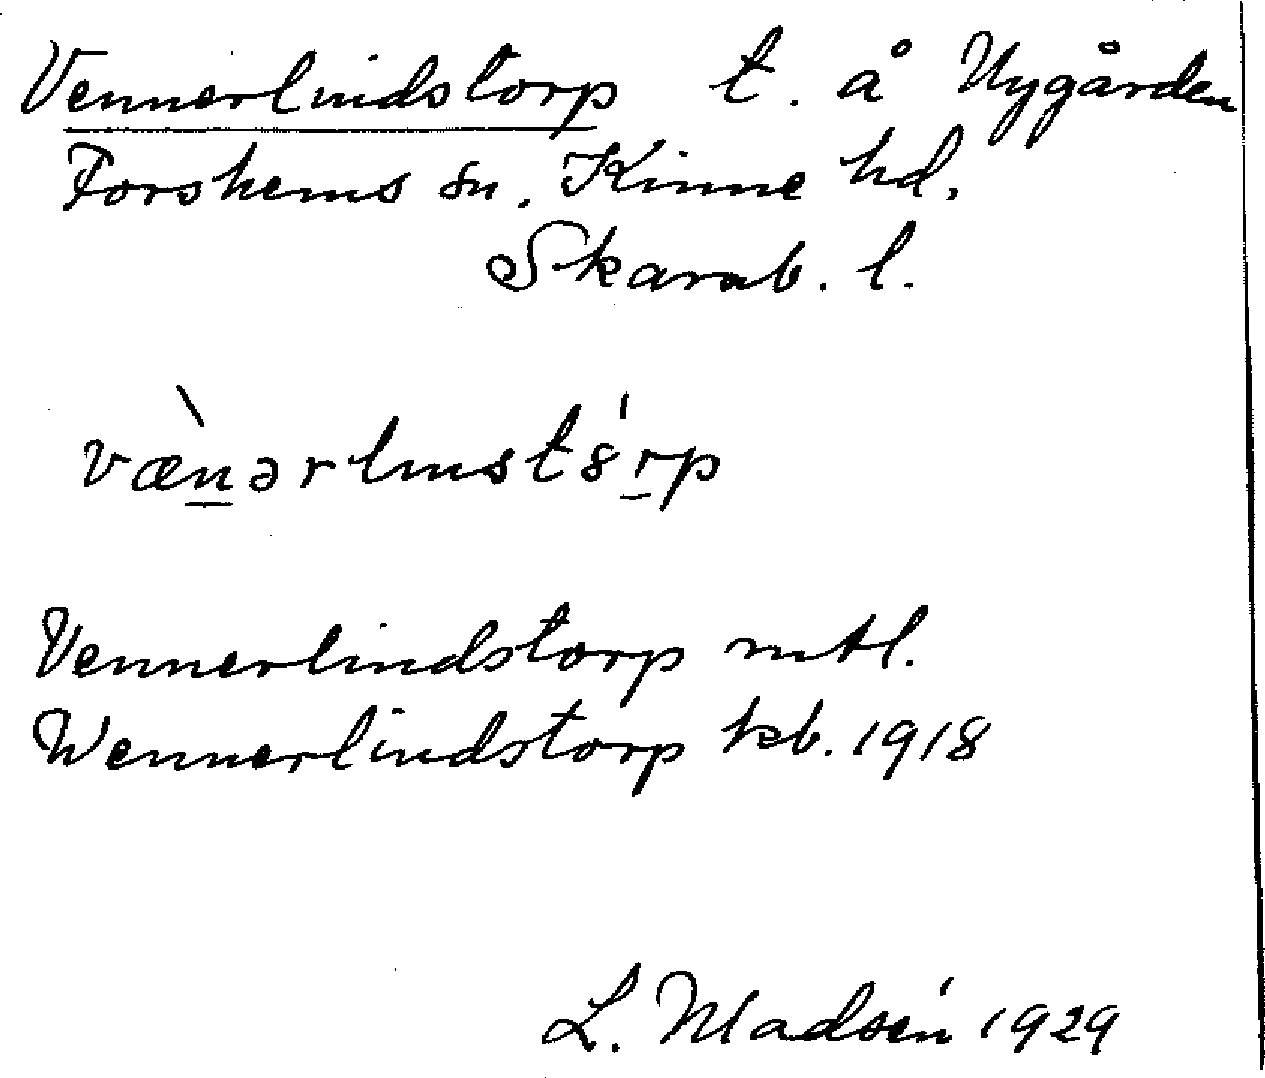 Vennerlindstorp t. å Nygården
Forshems sn. Kinne hd.
Skarab. l.
væ̀nərlınstȣ́rp
Vennerlindstorp mtl.
Wennerlindstorp kb. 1918
L. Madsén 1929